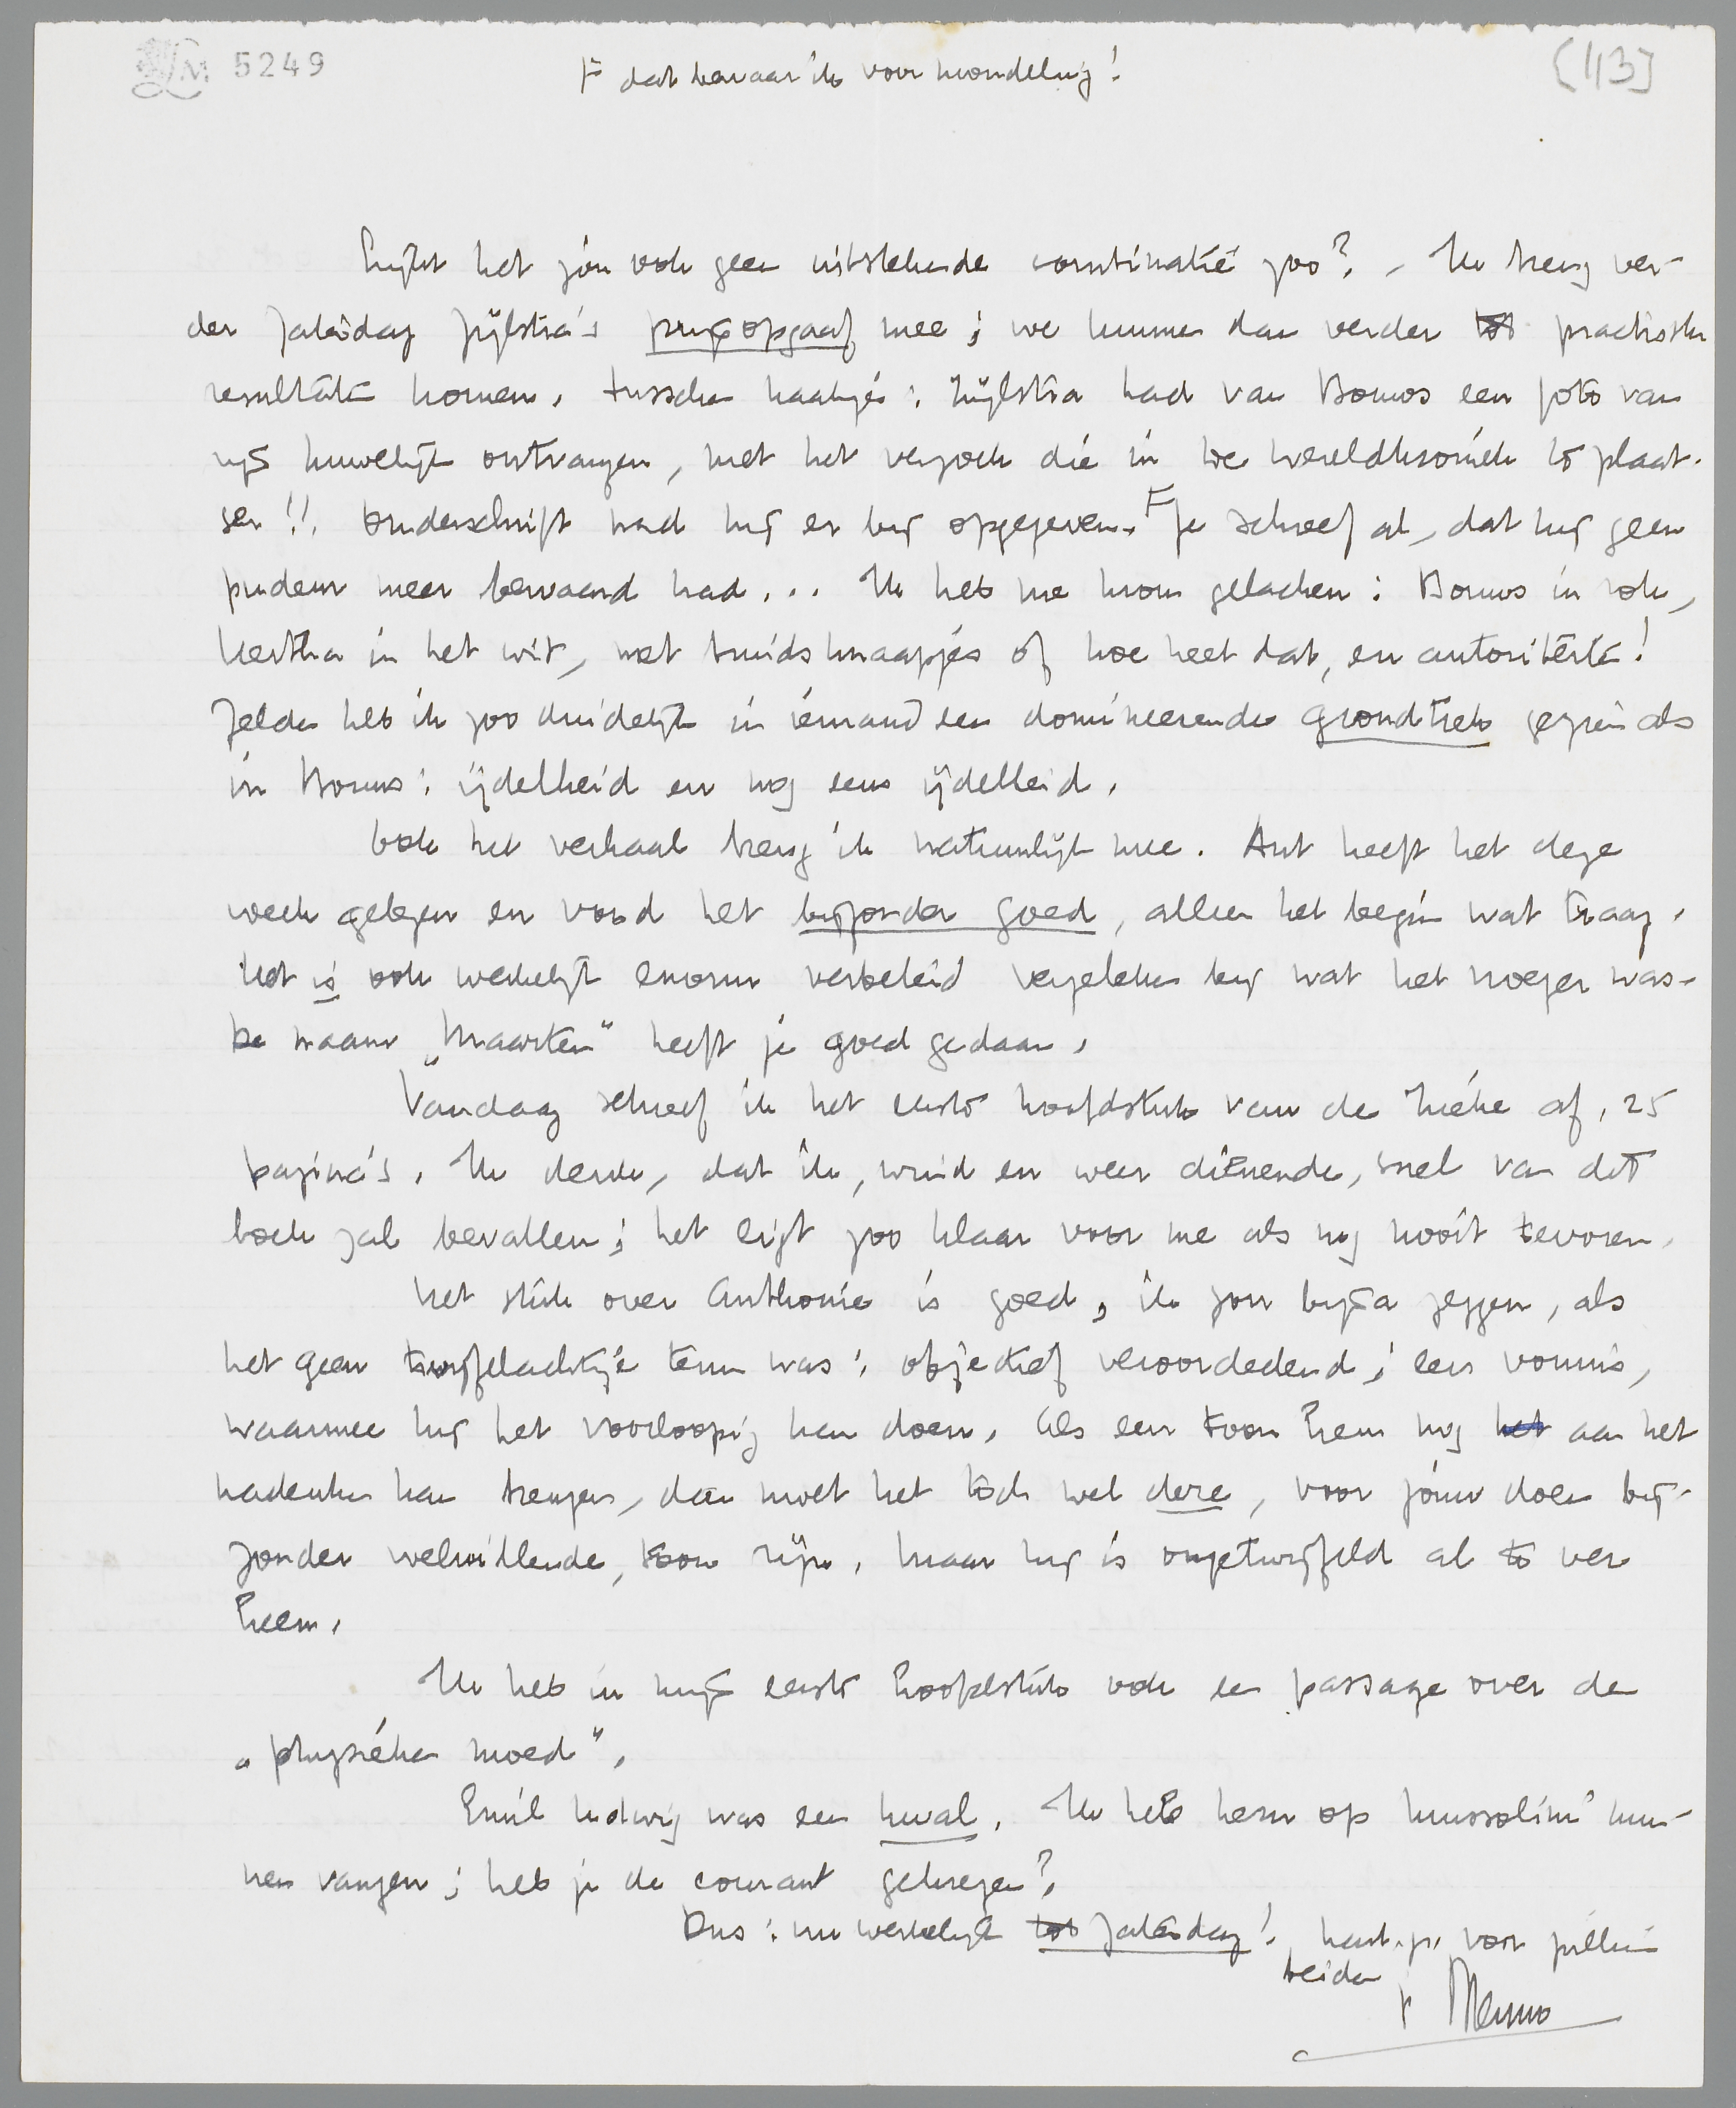 LM 5249
F dat bewaar ik voor mondeling!
[113]
Lijkt het jou ook geen uitstekende combinatie zoo? - Ik breng ver-
der Zaterdag Zijlstra's prijsopgaaf mee; we kunnen dan verder tot practische
resultaten komen. Tusschen haakjes: Zijlstra had van Bouws een foto van
zijn huwelijk ontvangen, met het verzoek die in de Wereldkroniek te plaat-
sen!! Onderschrift had hij er bij opgegeven. F Je schreef al, dat hij geen
pudeur meer bewaard had... Ik heb me krom gelachen: Bouws in rok,
Hertha in het wit, met bruidsknaapjes of hoe heet dat, en autoriteiten!
Zelden heb ik zoo duidelijk in iemand een domineerende grondtrek gezien als
in Bouws: ijdelheid en nog eens ijdelheid.
Ook het verhaal breng ik natuurlijk mee. Ant heeft het deze
week gelezen en vond het bijzonder goed, alleen het begin wat traag.
Het is ook werkelijk enorm verbeterd vergeleken bij wat het vroeger was.
De naam „Maarten" heeft je goed gedaan.
Vandaag schreef ik het eerste hoofdstuk van de Politicus af, 25
pagina's. Ik denk, dat ik, wind en weer dienende, snel van dit
boek zal bevallen; het ligt zoo klaar voor me als nog nooit tevoren.
Het stuk over Anthonie is goed, ik zou bijna zeggen, als
het geen twijfelachtige term was: objectief veroordeelend; een vonnis,
waarmee hij het voorloopig kan doen. Als een toon hem nog het aan het
nadenken kan brengen, dan moet het toch wel deze, voor jouw doen bij-
zonder welwillende, toon zijn. Maar hij is ongetwijfeld al te ver
heen.
Ik heb in mijn eerste hoofdstuk ook een passage over de
„physieke moed".
Emil Ludwig was een kwal. Ik heb hem op Mussolini kun-
nen vangen; heb je de courant gekregen?
Dus: nu werkelijk tot Zaterdag! hart. gr. voor jullie
beiden
t Menno